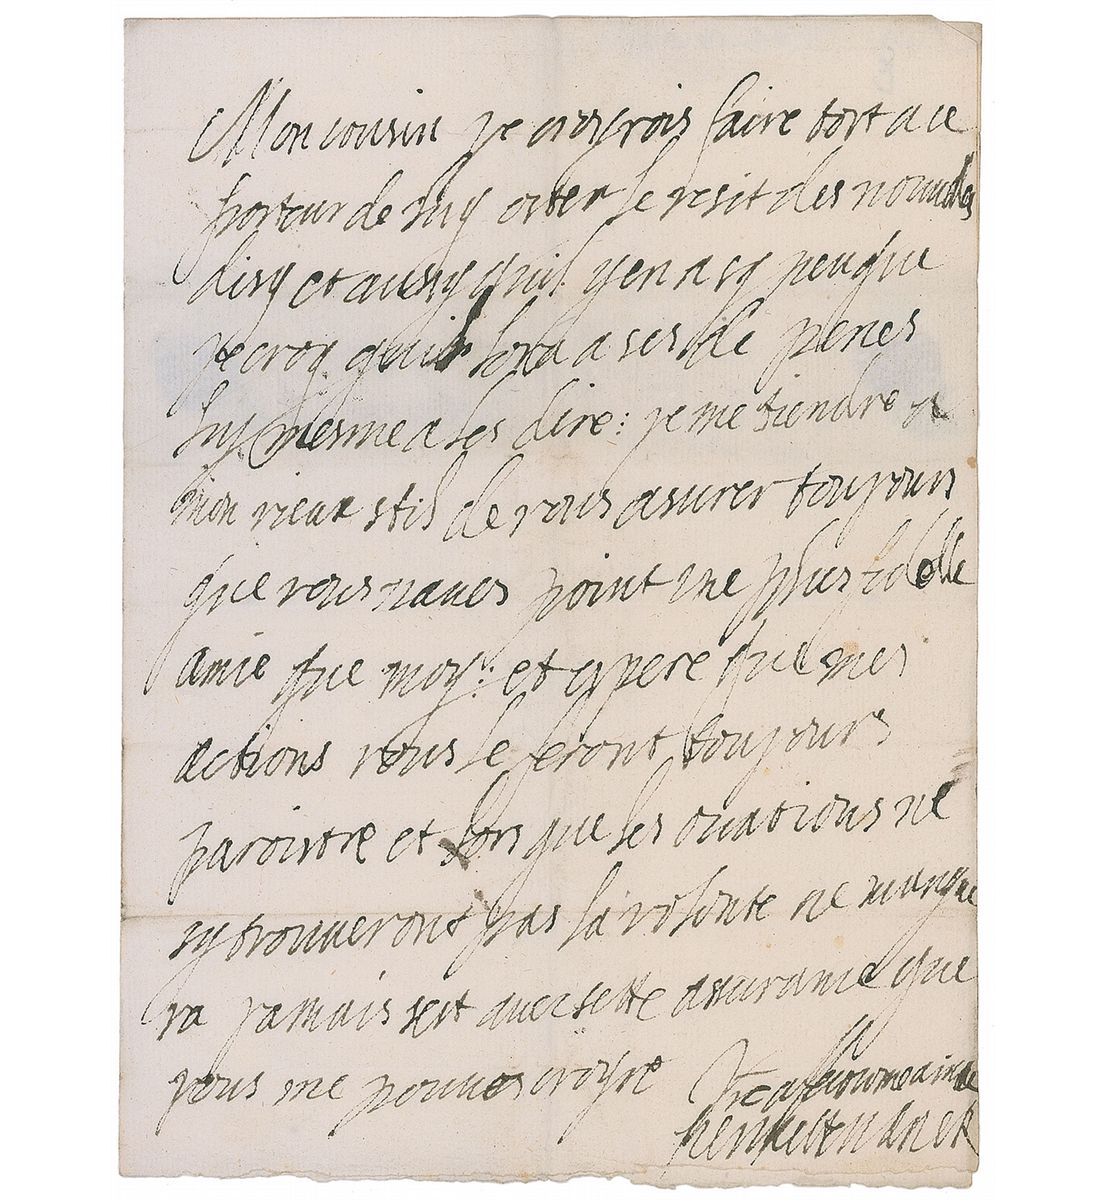 Mon cousin je croyrois faire tort a ce
porteur de luy oter le resit des nouuelles
disy et aussy quil y en a sy peu que
je croy quil sera ases de penes
luy mesme a les dire: je me tiendre a
mon vieux stil de vous asurer toujours
que vous naues point une plus fidelle
amie que moy: et espere que mes
actions vous le feront toujours
paroistre et lors que les ocations ne
sy trouueront pas la volonte ne manque
ra jamais sest auec sette assurance que
vous me pouues croyre